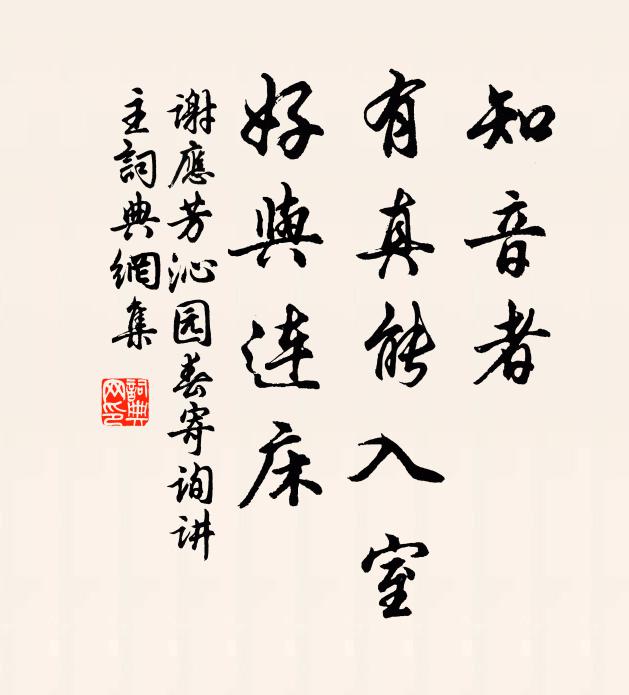 知音者
有真能入室
好與连床
谢應芳沁园春寄询讲
主詞典網集
詞典网印